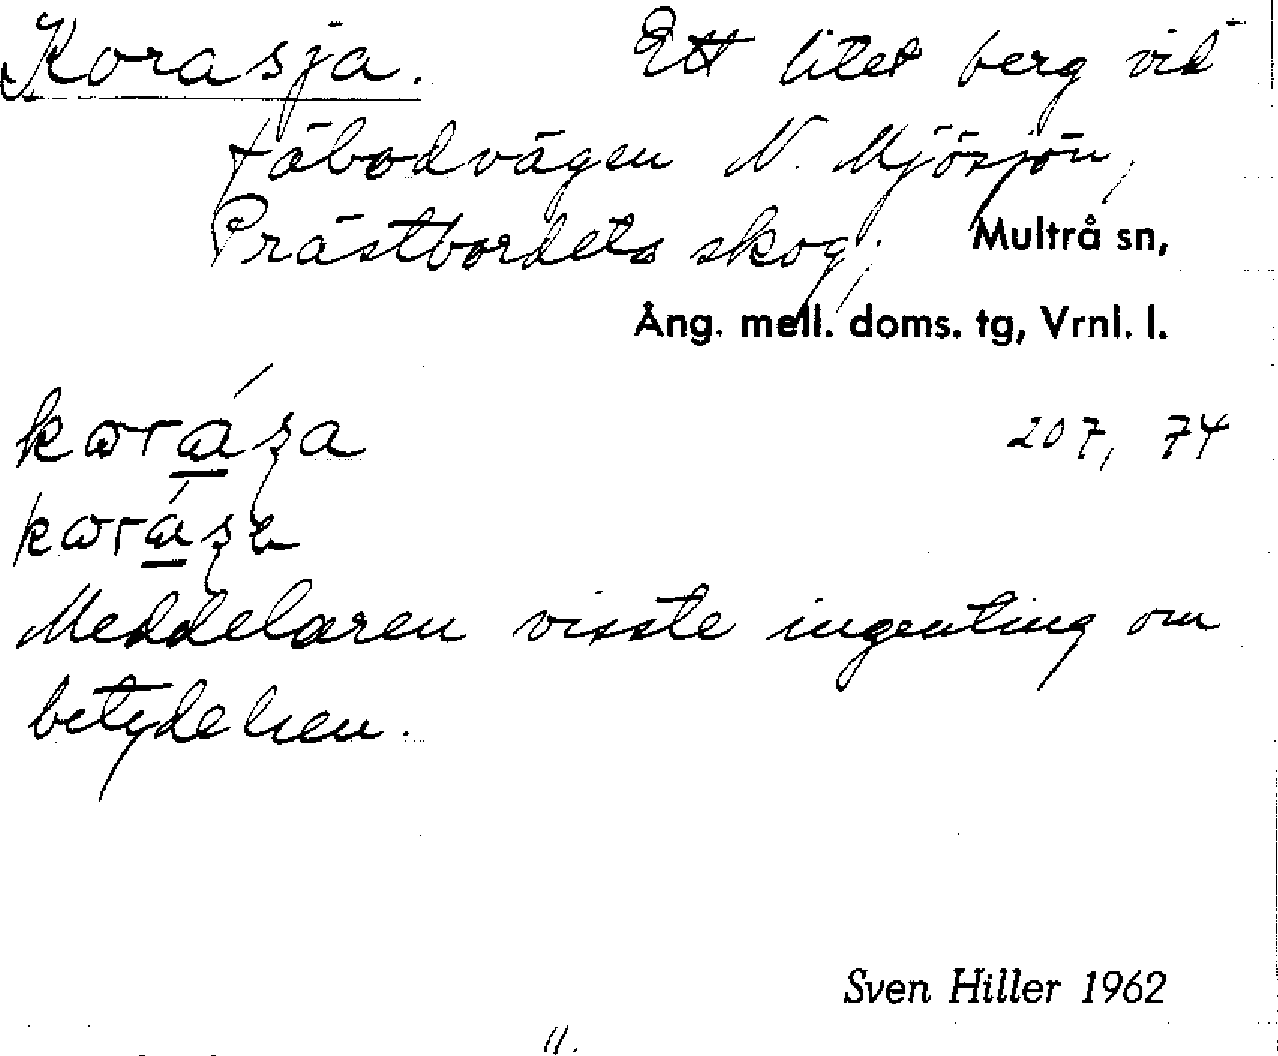 Korasja. Ett litet berg vid
fäbodvägen N. Mjösjön,
Prästbordets skog, Multrå sn,
Ång. mell. doms. tg, Vrnl. l.
207, 74
Meddelaren visste ingenting om
betydelsen.
Sven Hiller 1962
11.